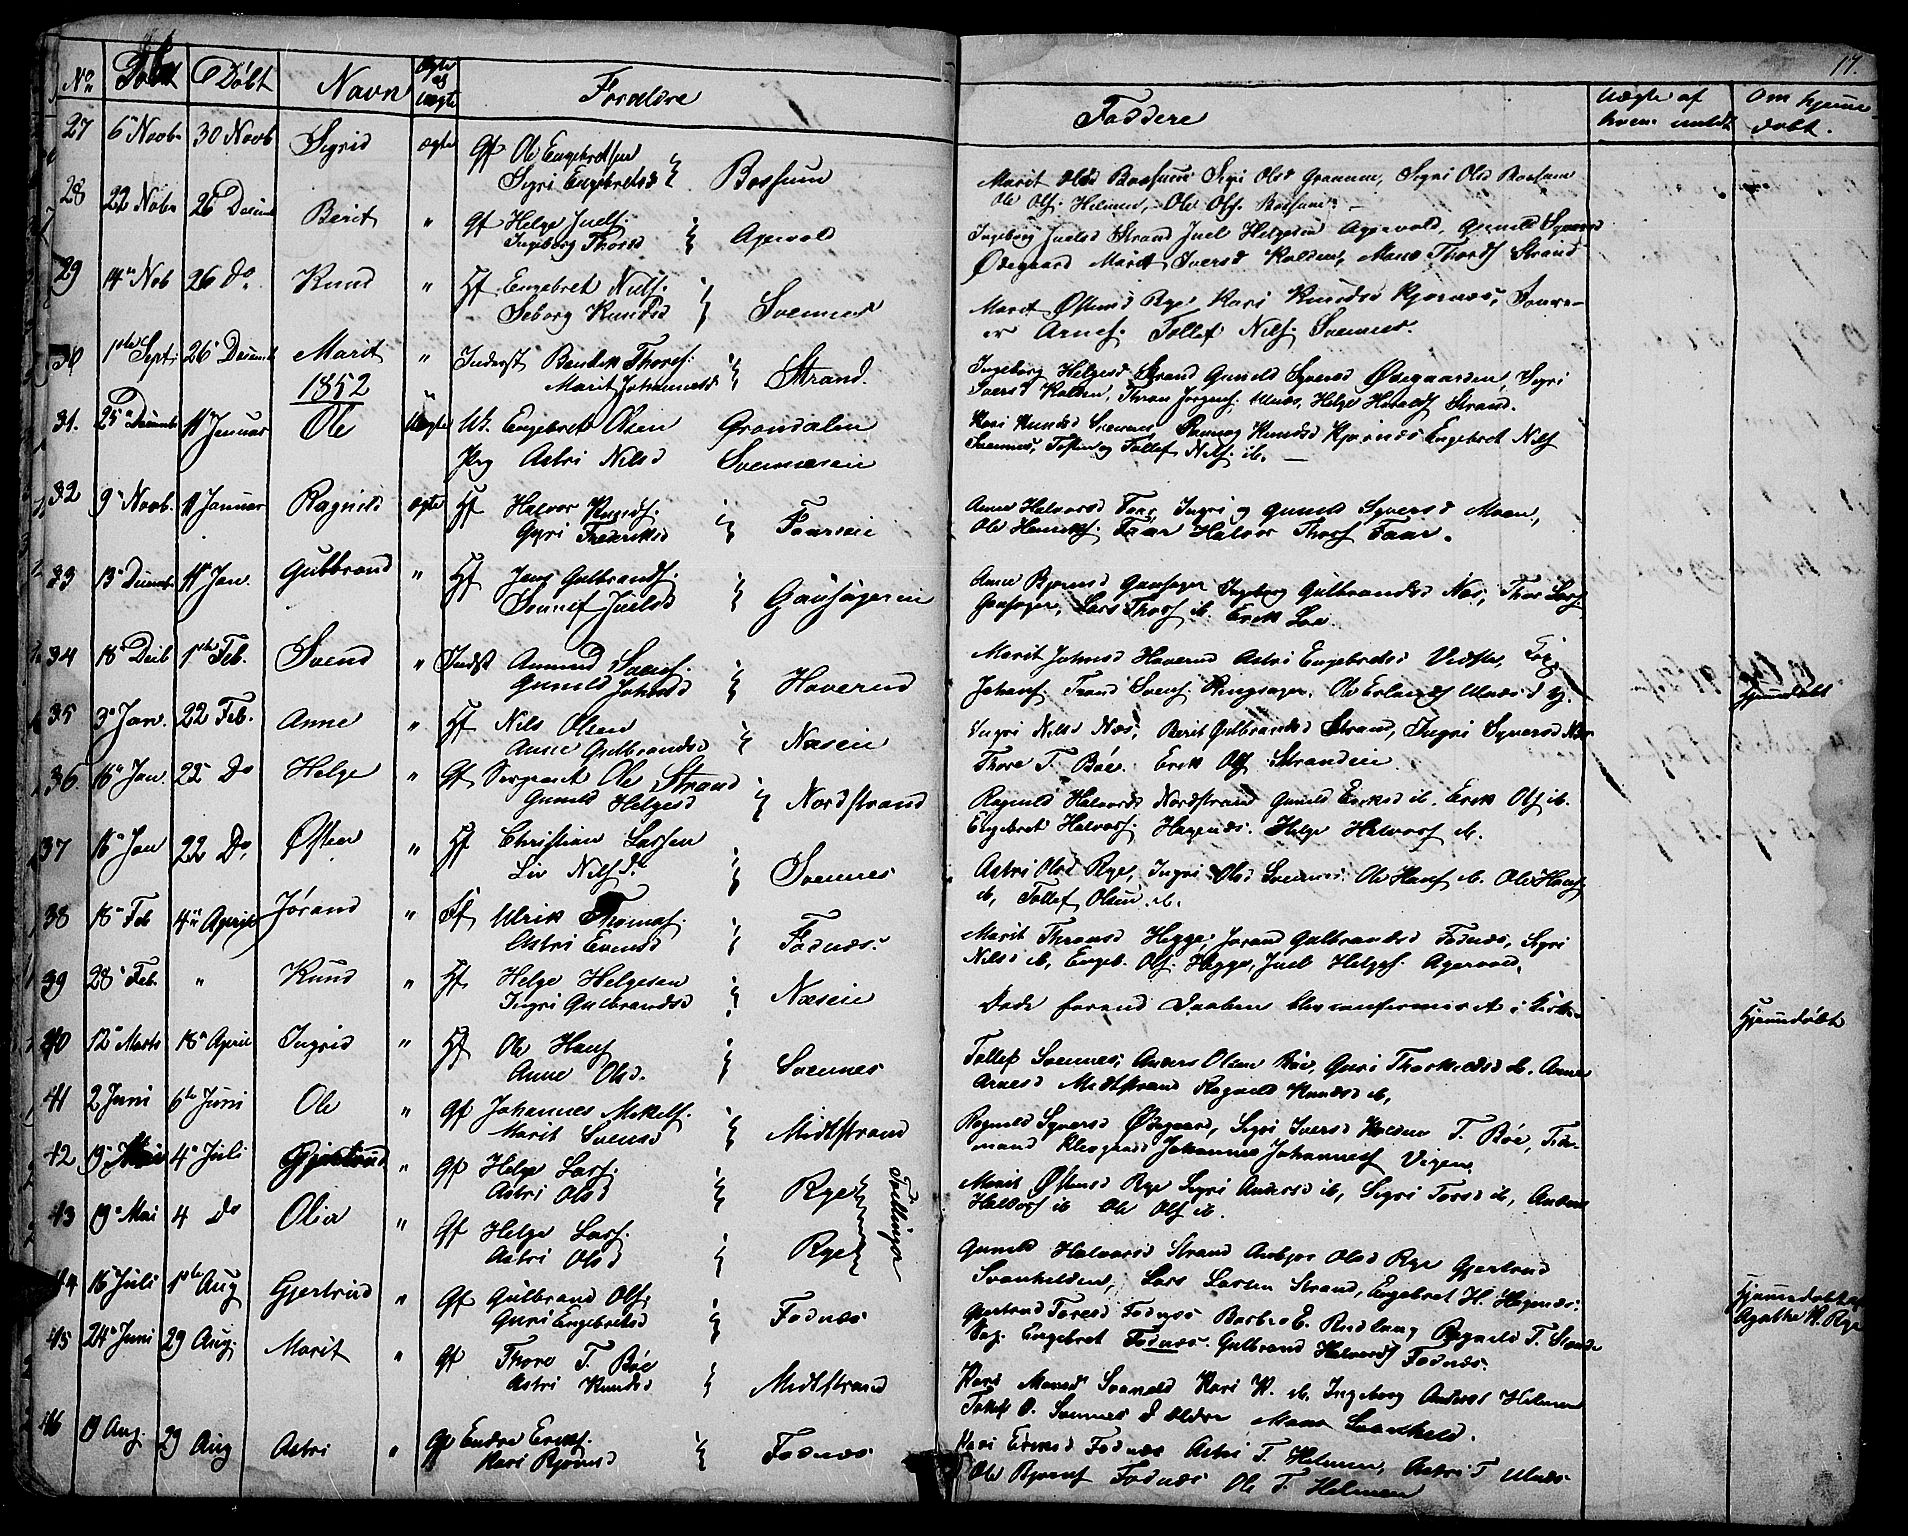 17.
No Født Døbt Navn Ægte og Uægte Forældre Faddere Uægte af hvem anmeldt Om hjemmedøbt.
27 6 Novb 30 Novb Sigrid ægte Gf Ole Engebretsen
Sigri Engebretsd Bossum
Marit Olsd Bossum Sigri Olsd Sigri Olsd Bossum
Ole Ols. Helmen, Ole Ols. Bossum.
28 22 Nobr 26 Decem Berit " Gf Helge Juels.
Ingeborg Thorsd Agevold
Ingeborg Juelsd Strand Juel Helgesen Agevold, Gunild
Ødegaard Marit Iversd Kolden, Thords Strand
29 14 Nob 26 Do Knud " Hf Engebret Nils.
Seborg Knudsd Svennes
Marit Østensd Rye Kari Knudsd Kjørnæs,
Arnes. Tollef Nils. Svennes.
30 1ste Sept 26 Decemb Marit " Inderst Bendik Thores.
Marit Johannesd Strand.
Ingeborg Helgesd Strand Gunild Syversd Ødegaarden, Sigri
Iversd Kolden, Thron Jørgens. Ulnæs, Helge Haralds Strand.
1852
31. 25 Decemb 11 Januar Ole Uægte Uk. Engebret Olsen Grøndalen
Pig Astri Nilsd Svenneseie
Kari Knudsd Svennes Knudsd Kjørnæs Engebret Nils
Svennes, Tosten og Tollef Nils. ib.
32 9 Novb. 11 Januar Ragnild ægte Hf Halvor Knuds.
Guri Frederiksd Faarseie
Anne Halvorsd Faar Ingri og Gunild Syversd Moen,
Ole Henriks. Faar Halvor Thors Faar.
33 13 Decemb 11 Jan. Gulbrand " Hf Jens Gulbrands.
Sønnef Juelsd Gausagereie
Anne Bjørnsd Gausager Ingeborg Gulbrandsd Næs, Thor Lars.
Gausager, Lars Thors ib. Erik Loe.
34 18 Decb 1ste Feb. Svend " Indst Amund Svens.
Gunild Johnsd Haverud
Marit Johnsd Haverud Astri Engebretsd Vidste,
Johans. Trond Svens. Ringsager, Ole Erlands Ulnæs
Hjemmedøbt
35 3 Jan. 22 Feb. Anne " Hf Nils Olsen
Anne Gulbrandsd Næseie
Ingri Nilsd Næs, Berit Gulbrandsd Strand, Ingri Syversd Næs
Thore T. Bøe. Erik Ols Strandeie
36. 16 Jan. 22 Do Helge " Gf Sergeant Ole Strand
Gunild Helgesd Nordstrand
Ragnild Halvorsd Nordstrand Gunild Eriksd ib. Erik Ols ib.
Engebret Halvors. Hagenæs. Helge Halvors ib.
37 16 Jan 22 Do Østen " Hf Christian Larsen
Liv Nilsd. Svennes
Astri Olsd Rye, Ingri Olsd Svennes. Ole Hans ib. Ole Hans
ib, Tollef Olsen ib.
38 18 Feb 4 April Jørand " Sf Ulrik Thomas.
Astri Evensd Fodnæs.
Marit Thronsd Hegge, Jørand Gulbrandsd Fodnæs, Sigri
Nilsd ib, Engeb. Ols. Hegge, Juel Helges. Agervold.
39 28 Feb. " Knud " Hf Helge Helgesen
Ingri Gulbrandsd Næseie
Døde forend Daaben blev confirmeret i Kirken
Hjemmedøbt
40 12 Marts 18 April Ingrid " Hf Ole Hans
Anne Olsd. Svennes
Tollef Svennes, Anders Olsen Bøe, Guri Thorkildsd ib. Anne
Arnesd Midtstrand Ragnild Knudsd ib,
41 2 Juni 6te Juni Ole " Gf Johannes Mikels.
Marit Svensd Midtstrand
Ragnild Syversd Ødegaard, Sigri Iversd Kolden T. Bøe,
Johannes Johannes Vigen.
42 19 Mai 4 Juli Gjertrud " Gf Helge Lars.
Astri Olsd Rye
Tvillinger
Marit Østensd Rye Sigri Andersd ib, Sigri Torsd ib, Anders
Halvors ib Ole Ols ib.
43 19 Mai 4 Do Olia " Gf Helge Lars.
Astri Olsd Rye
Gunild Halvorsd Strand Anbjør Olsd Rye Gjertrud
Svanhilden, Lars Larsen Strand, Engebret H. Hagenæs.
44 16 Juli 1ste Aug Gjertrud " Gf Gulbrand Ols.
Guri Engebretsd Fodnæs
Gjertrud Toresd Fodnæs Barbro E. Ragnild T. Strande
Engebret Fodnæs. Gulbrand Halvors Fodnæs.
Hjemmedøbt af
Agathe K. Rye
45 24 Juni 29 Aug. Marit " Gf Thore T. Bøe
Astri Knudsd Midtstrand
Kari Svanhild Kari K. ib. Ingeborg Andersd Helmen
Tollef O. Svennes d ældre, Svanhild.
46 19 Aug. 29 Aug Astri " Gf Endre Eriks.
Kari Bjørnsd Fodnæs
Kari Eriksd Fodnæs Astri T. Helmen, Astri T Ulnæs
Ole Bjørns Fodnæs Ole T. Helmen